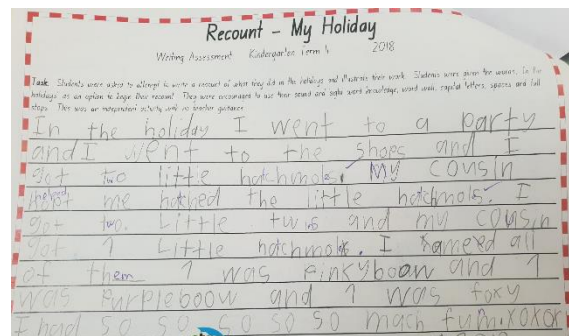 Recount - My Holiday
Writing Assessment Kindergarten Term 4 2018
Task: Students were asked to attempt to write a recount of what they did in the holidays and illustrate their work. Students were given the words, In the
holidays as an option to begin their recount. They were encouraged to use their sound and sight word knowledge, word wall, capital letters, spaces and full
stops. This was an independent activity with no teacher guidance.
In the holiday I went to a party
and I went to the shops and I
got two little hatchmols. My cousin
me hatched the little hatchmols. I
got two. Little twis and my cousin
got 1 Little hatchmols. I named all
of them 1 was Pinkyboow and 1
was Purpleboow and 1 was foxy
I had so so so so so mach fun.